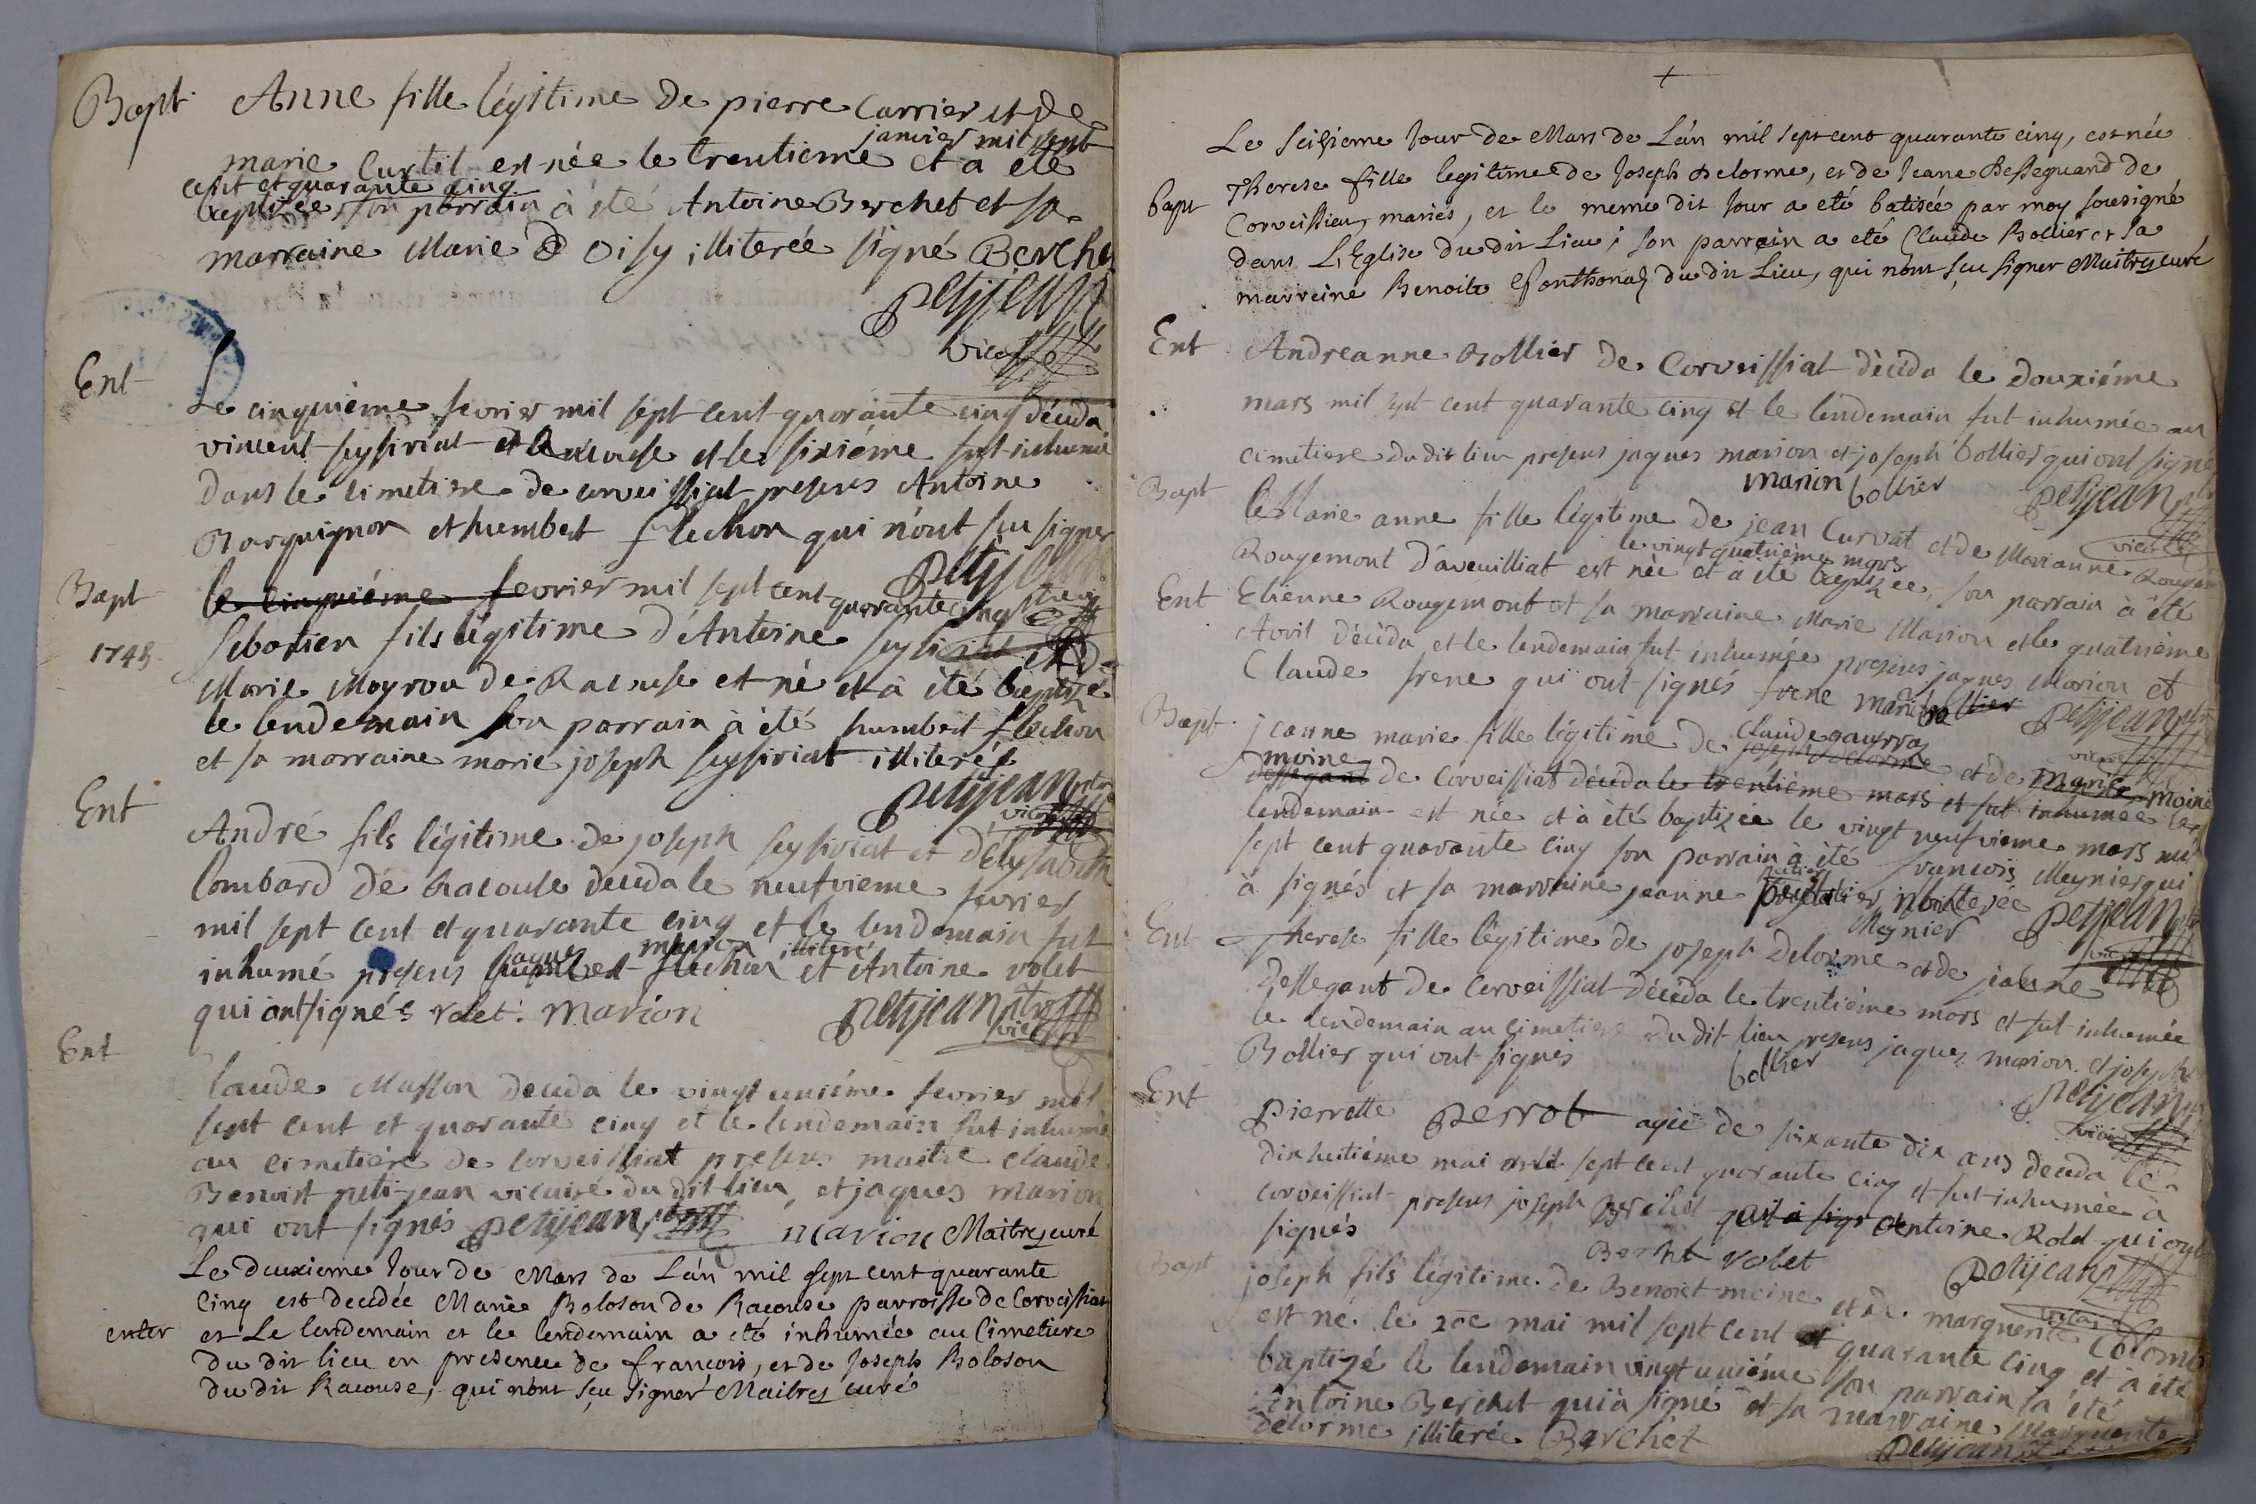 Bapt Anne fille légitime de pierre Carrier et de
janvier mil sept
marie Curtil est née le trentieme et a ete
cent et quarante cinq
baptisée, son parrain à été Antoine Berchet et sa
marraine Marie D Oisy illiterée signé Berchet
petijean
vicaire
Ent
Le cinquiéme fevrier mil sept cent quorante cinq décéda
vincent seyssiriat de racouse et le sixiéme fut inhumé
dans le cimetiere de corveissiat presens Antoine
Borguignon et humbert flechon qui n'ont su signer
petijean
Bapt le cinquiéme fevrier mil sept cent quarante cinq
1745 Sebastien fils légitime d'Antoine seyssiriat et de
Marie Moyrou de Racouse est né et à été baptizé
le lendemain son parrain à été humbert flechon
et sa marraine marie joseph seyssiriat illiterée
petijean ptre
vicaire
Ent
André fils légitime de joseph seyssiriat et d'élysabeth
lombard de Racouse decéda le neufvieme fevrier
mil sept cent et quarante cinq et le lendemain fut
jaques marion illiteré
inhumé presens humbert flechon et Antoine volet
qui ont signés volet. Marion petijean ptre
vic
Ent
laude Masson deceda le vingt uniéme fevrier mil
sept cent et quorante cinq et le lendemain fut inhumé
au cimetiére de corveissiat presens maitre claude
Benoist petijean vicaire du dit lieu, et jaques marion
qui ont signés petijean ptre marion Maitrez curé
Le deuxieme Jour de Mars de L'an mil sept cent quarante
Cinq est decedée Marie Boloson de Racouse parroisse de Corveissiat
enter et Le lendemain et le lendemain a été inhumée au Cimetiere
du dit lieu en presence de francois, et de Joseph Boloson
du dit Racouse, qui n'ont sçu signer Maitrez curé
+
Le seizieme Jour de Mars de L'an mil sept cent quarante cinq, est née
Therese fille legitime de Joseph Delorme, et de Jeane Bessequand de
bapt Corveissiat, mariés, et le meme dit Jour a eté batisée par moy sousigné
dans L'Eglise du dit Lieu; son parrain a eté Claude Bollier et sa
marreine Benoite Fonthonaz du dit Lieu, qui n'ont sçu signer Maitrez curé
Ent Andreanne Bollier de Corveissiat décéda le douxiéme
mars mil sept cent quarante cinq et le lendemain fut inhumée au
cimetiere du dit lieu presens jaques marion et joseph bollier qui ont signé
marion bollier petijean
Bapt Marie anne fille légitime de jean Curvat et de Marianne Rougemont
vicaire
le vingt quatriéme mars
Rougemont d'aveuilliat est née et à été baptizée, son parrain à été
Ent Etienne Rougemont et sa marraine Marie Marion et le quatriéme
Avril décéda et le lendemain fut inhumée presens jaques Marion et
Claude frene qui ont signés frene marion petijean ptre
vicaire
claude gauvra
Bapt jeanne marie fille légitime de joseph delorme et de Marie moine
moine
dessegant de Corveissiat décéda le trentiéme mars et fut inhumée le
lendemain est née et à été baptizée le vingt neufvieme mars mil
sept cent quarante cinq son parrain à été francois Meynier qui
à signés et sa marraine jeanne illiterée petijean
Meynier
vicaire
Ent Therese fille légitime de joseph Delorme et de jeanne
Dessegant de Corveissiat décéda le trentiéme mars et fut inhumée
le lendemain au cimetiere du dit lieu presens jaques marion et joseph
Bollier qui ont signés bollier
petijean
vicaire
Ent Pierrette perrot agée de soixante dix ans deceda le
dixhuitiéme mai mil sept cent quarante cinq et fut inhumée à
corveissiat presens joseph Berchet qui à signé Antoine Volet qui ont
signés Berchet volet petijean
vicaire
Bapt joseph fils légitime de Benoist moine et de marguerite Colomb
est né le 20e mai mil sept cent et quarante cinq et à été
baptizé le lendemain vingt uniéme son parrain à été
Antoine Berchet qui à signé et sa marraine Marguerite
delorme illiterée Berchet petijean